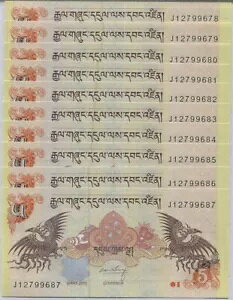 རྒྱལ་གཞུང་དངུལ་ལས་དབང་འཛིན། J12799678
རྒྱལ་གཞུང་དངུལ་ལས་དབང་འཛིན། J12799679
རྒྱལ་གཞུང་དངུལ་ལས་དབང་འཛིན། J12799680
རྒྱལ་གཞུང་དངུལ་ལས་དབང་འཛིན། J12799681
རྒྱལ་གཞུང་དངུལ་ལས་དབང་འཛིན། J12799682
རྒྱལ་གཞུང་དངུལ་ལས་དབང་འཛིན། J12799683
རྒྱལ་གཞུང་དངུལ་ལས་དབང་འཛིན། J12799684
རྒྱལ་གཞུང་དངུལ་ལས་དབང་འཛིན། J12799685
རྒྱལ་གཞུང་དངུལ་ལས་དབང་འཛིན། J12799686
རྒྱལ་གཞུང་དངུལ་ལས་དབང་འཛིན། J12799687
དངུལ་ཀྲམ་ལྔ།
J12799687
5